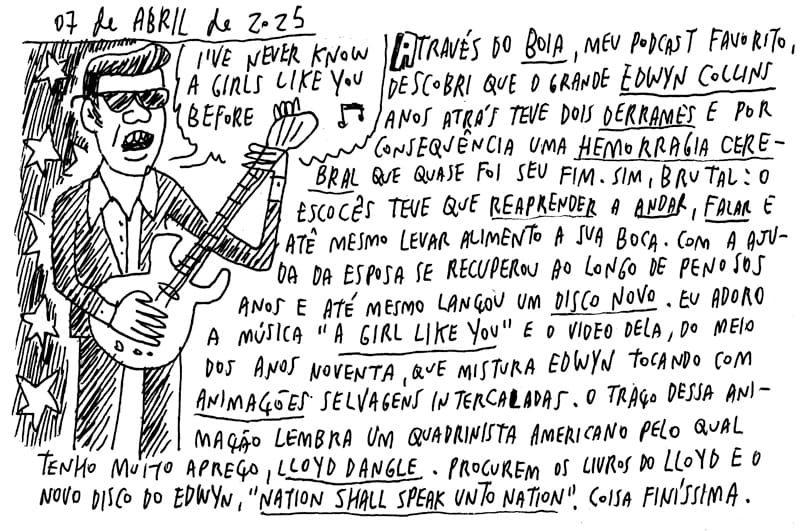 07 de ABRIL de 2025
I'VE NEVER KNOW
A GIRLS LIKE YOU
BEFORE
ATRAVÉS DO BOIA, MEU PODCAST FAVORITO,
DESCOBRI QUE O GRANDE EDWYN COLLINS
ANOS ATRÁS TEVE DOIS DERRAMES E POR
CONSEQUÊNCIA UMA HEMORRAGIA CERE-
BRAL QUE QUASE FOI SEU FIM. SIM, BRUTAL: O
ESCOCÊS TEVE QUE REAPRENDER A ANDAR, FALAR E
ATÊ MESMO LEVAR ALIMENTO A SUA BOCA. COM A AJU-
DA DA ESPOSA SE RECUPEROU AO LONGO DE PENOSOS
ANOS E ATÉ MESMO LANÇOU UM DISCO NOVO. EU ADORO
A MÚSICA "A GIRL LIKE YOU" E O VIDEO DELA, DO MEIO
DOS ANOS NOVENTA, QUE MISTURA EDWYN TOCANDO COM
ANIMAÇÕES SELVAGENS INTERCALADAS. O TRAÇO DESSA ANI-
MAÇÃO LEMBRA UM QUADRINISTA AMERICANO PELO QUAL
TENHO MUITO APREÇO, LLOYD DANGLE. PROCUREM OS LIVROS DO LLOYD E O
NOVO DISCO DO EDWYN, "NATION SHALL SPEAK UNTO NATION". COISA FINÍSSIMA.